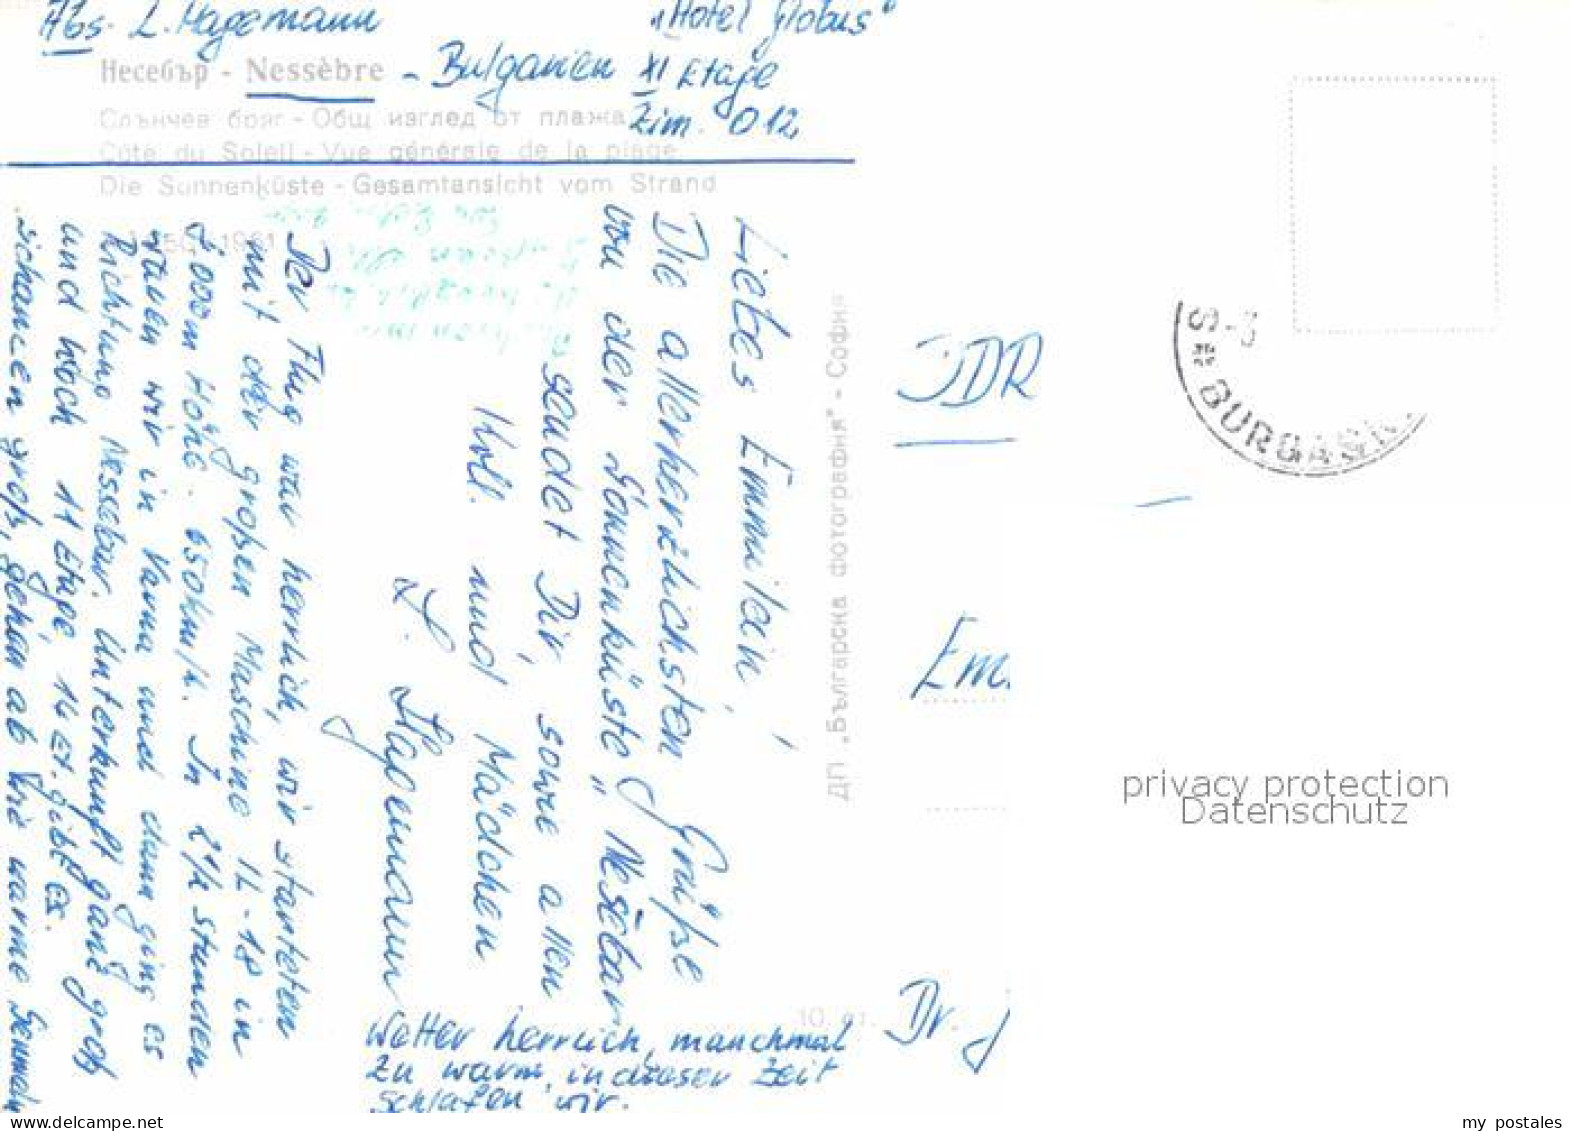 Abs. L. Hagemann "Hotel Globus"
Несебър - Nessèbre - Bulgarien XI Etage
Слънчев бряг - Общ изглед от плажа Zim. 012
Côte du Soleil - Vue générale de la plage
Die Sunnenküste - Gesamtansicht vom Strand
1961
Liebes Emmilein,
Die allerherzlichsten Grüße
von der Sonnenküste "Nesebar
sendet Dir, sowie allen
Koll. und Mädchen
L. Hagemann
Der Flug war herrlich, wir starteten
mit der großen Maschine IL-18 in
8000m Höhe. 650km/h. In 2 1/2 Stunden
waren wir in Varna und dann ging es
Richtung Nessebar. Unterkunft ganz groß
und hoch 11 Etage, 14 Et. gibt es.
warme
Wetter herrlich, manchmal
zu warm, in dieser Zeit
schlafen wir.
ДП „Българска фотография" - София
DDR
BURGAS
Em.
privacy protection
Datenschutz
Dr. J
my postales